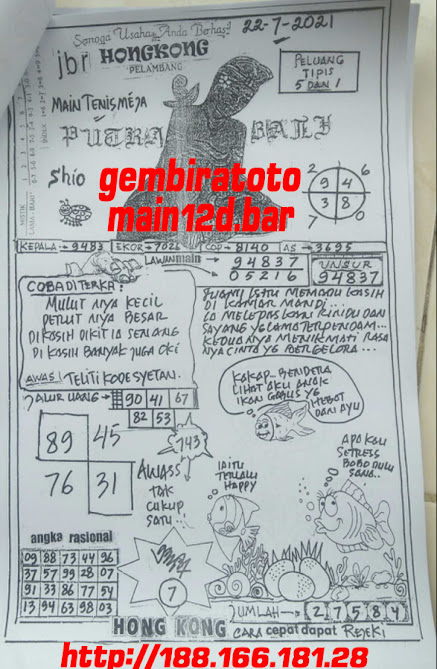 Semoga Usaha Anda Berhasil
22-7-2021
jbr HONGKONG
PELAMBANG
PELUANG
TIPIS
5 DAN 1
MAIN TENIS MEJA
PUTRA BALI
Shio
gembiratoto
main12d.bar
2 6
9 4
3 8
7 0
KEPALA → 9483 EKOR → 7026 COP → 8140 AS → 3695
LAWAN main → 94837
05216
UNSUR
94837
COBA DITERKA:
MULUT NYA KECIL
PERUT NYA BESAR
DIKASIH DIKIT IA SENANG
DI KASIH BANYAK JUGA OKI
SUAMI ISTRI MEMADU KASIH
DI KAMAR MANDI...
IA MELEPASKAN RINDU DAN
SAYANG YG LAMA TERPENDAM...
KEDUANYA MENIKMATI RASA
NYA CINTA YG BERGELORA...
AWAS! TELITI KODE SYETAN.
JALUR UANG → 90 41 67
82 53
KAKAP-BENDERA
LIHAT AKU ANAK
IKAN GRATIS YG
HEBOT
DAN AYU
89 45
76 31
743
AWASS
TAK
CUKUP
SATU..!
IAITU
TERLALU
HAPPY
APO KAU
SETRESS
BOBO DULU
SANA..
angka rasional
09 88 73 44 96
37 57 99 28 07
91 33 86 77 54
13 94 63 98 03
7
JUMLAH → 2 7 5 8 4
HONG KONG CARA cepat dapat REJEKI
http://188.166.181.28